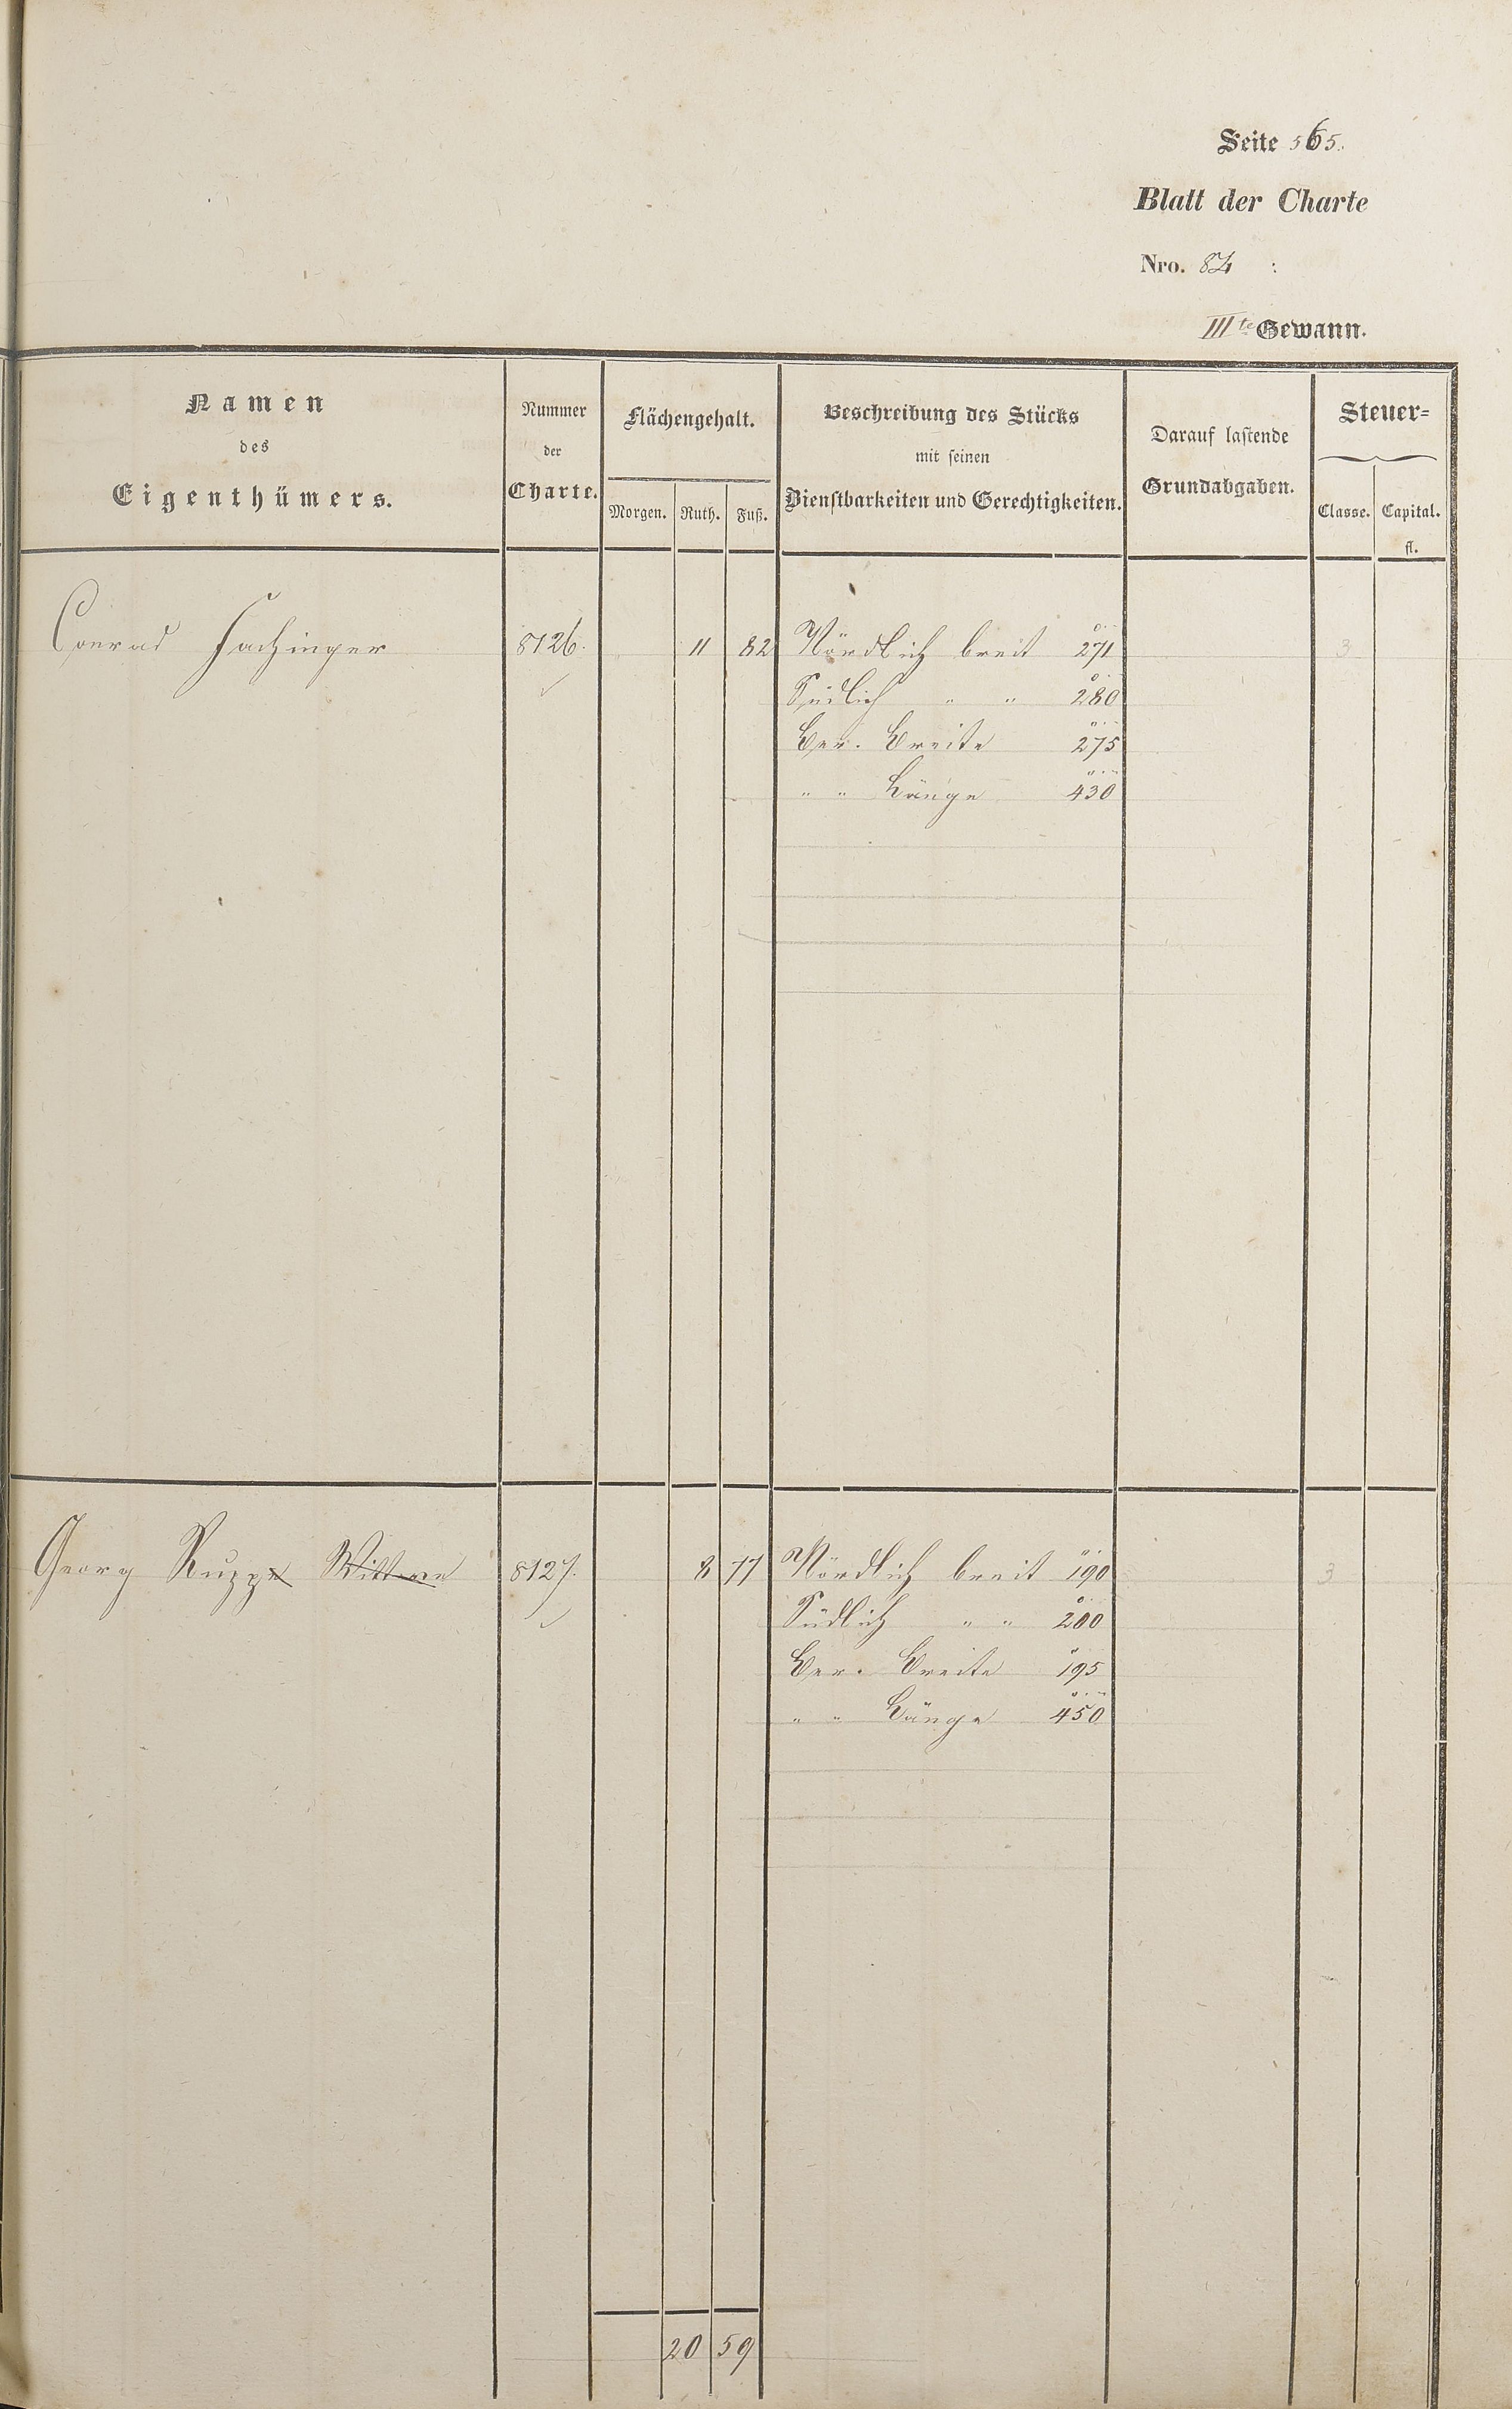 Seite 565.
Blatt der Charte
Nro. 84 :
IIIte Gewann.
Namen
des
Eigenthümers.
Nummer
der
Charte.
Flächengehalt.
Morgen. Ruth. Fuß.
Beschreibung des Stücks
mit seinen
Dienstbarkeiten und Gerechtigkeiten.
Darauf lastende
Grundabgaben.
Steuer=
Classe. Capital.
fl.
Conrad Hachinger 8126. 11 82 Nördlich breit 271 3
Südlich " " 280
Ber. Breite 275
" " Länge 430
Georg Rupp Wittwe 8127. 8 77 Nördlich breit 190 3
Südlich " " 200
Ber. Breite 195
" " Länge 450
20 59